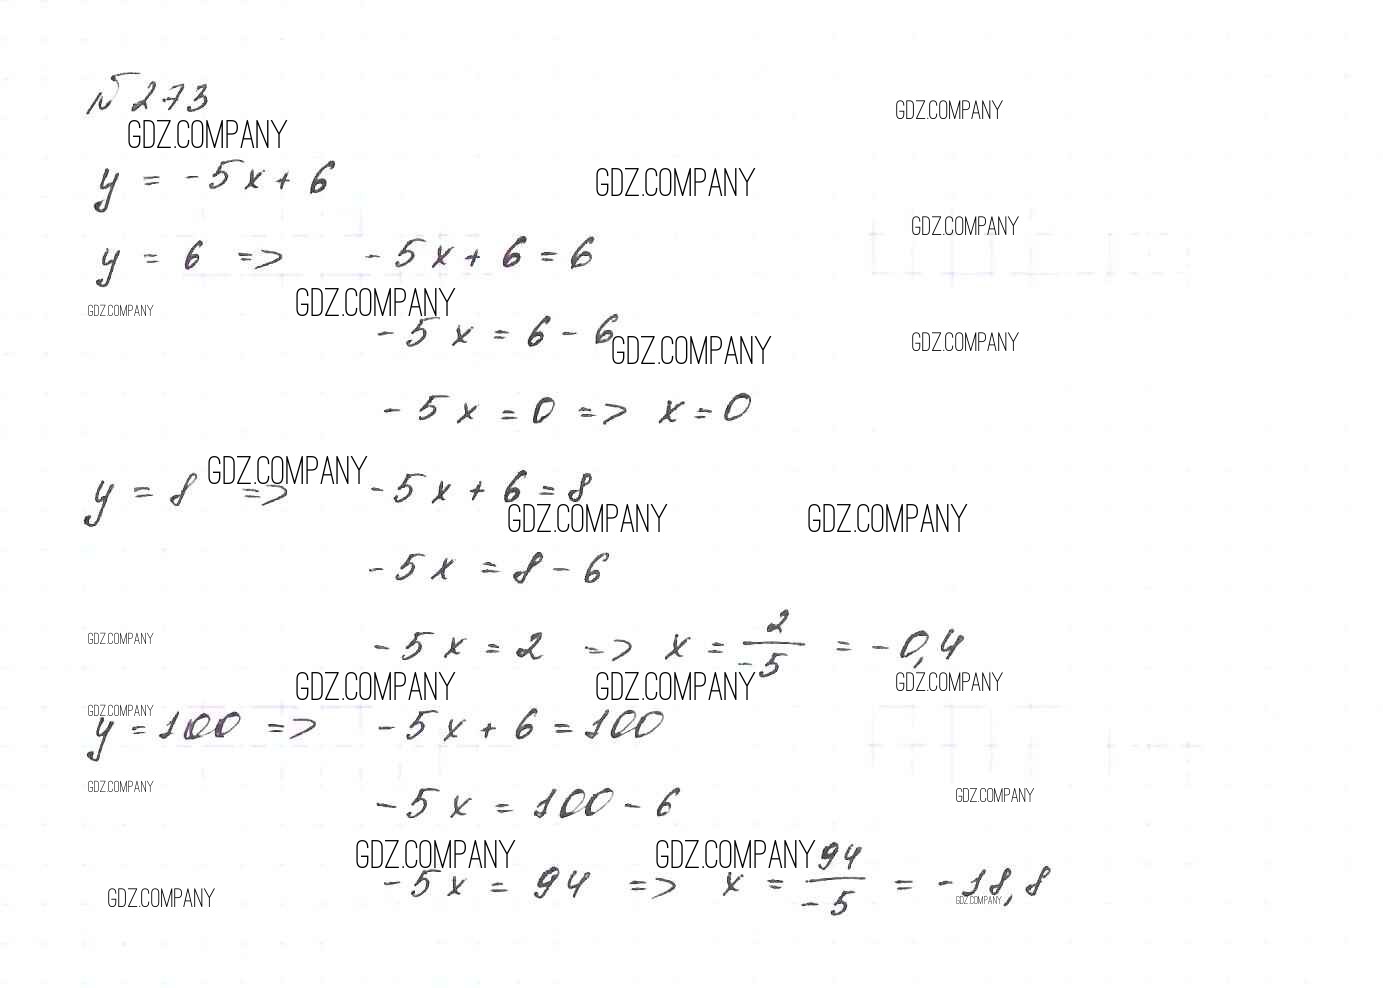 № 273
GDZ.COMPANY
GDZ.COMPANY
y = -5x + 6
GDZ.COMPANY
GDZ.COMPANY
y = 6 => -5x + 6 = 6
GDZ.COMPANY
GDZ.COMPANY
-5x = 6 - 6
GDZ.COMPANY
GDZ.COMPANY
-5x = 0 => x = 0
GDZ.COMPANY
y = 8 => -5x + 6 = 8
GDZ.COMPANY
GDZ.COMPANY
-5x = 8 - 6
GDZ.COMPANY
-5x = 2 => x = 2/-5 = -0,4
GDZ.COMPANY
GDZ.COMPANY
GDZ.COMPANY
GDZ.COMPANY
y = 100 => -5x + 6 = 100
GDZ.COMPANY
GDZ.COMPANY
-5x = 100 - 6
GDZ.COMPANY
GDZ.COMPANY
-5x = 94 => x = 94/-5 = -18,8
GDZ.COMPANY
GDZ.COMPANY